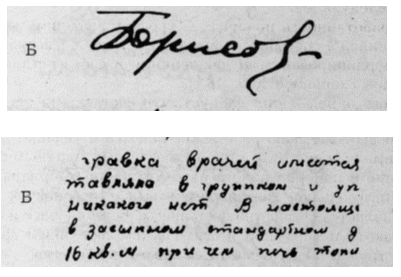 Б
Борисов
Б
травка врачей имеется
тавляла в групном и уп
никакого нет В настояще
в засыпном стандартном д
16 кв. м при чем печь топи